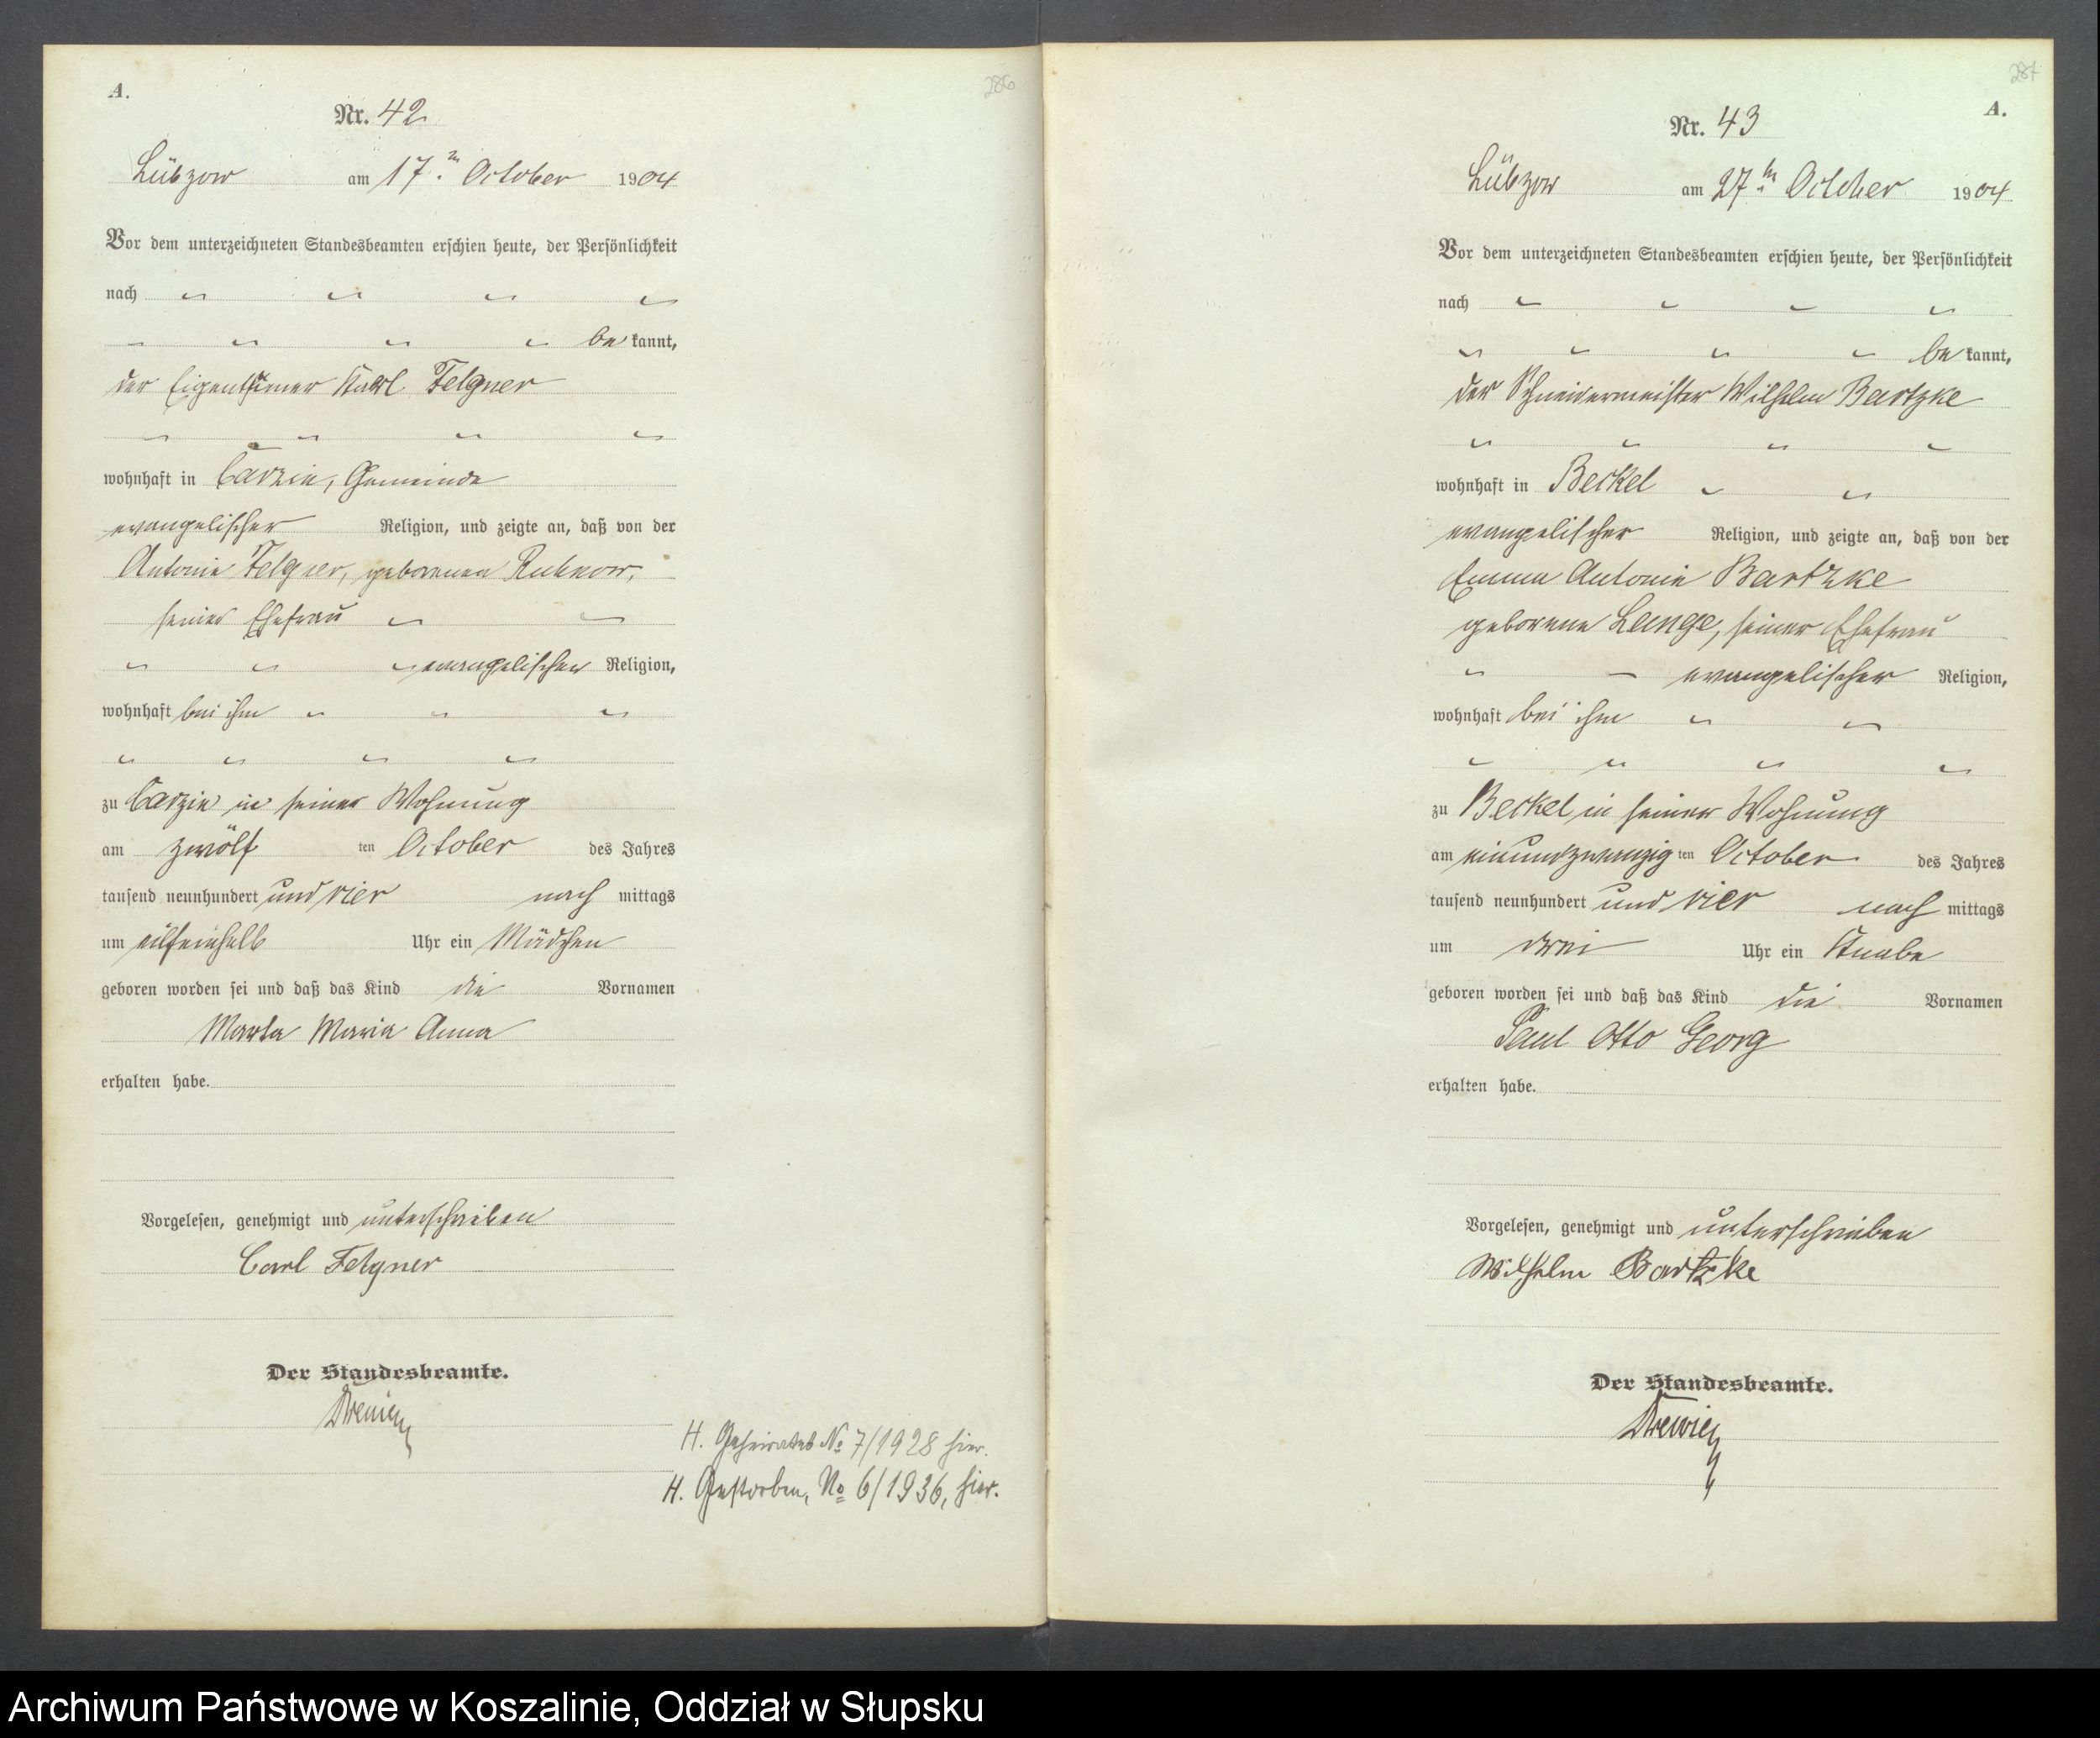 286
A.
Nr. 42
Lübzow am 17.ten October 1904
Vor dem unterzeichneten Standesbeamten erschien heute, der Persönlichkeit
nach
be kannt,
der Eigenthümer Karl Felgner
wohnhaft in Carzin, Gemeinde
evangelischer Religion, und zeigte an, daß von der
Antonie Felgner, geborenen Ruknow,
seiner Ehefrau
evangelischer Religion,
wohnhaft bei ihm
zu Carzin in seiner Wohnung
am zwölf ten October des Jahres
tausend neunhundert und vier nach mittags
um eilfeinhalb Uhr ein Mädchen
geboren worden sei und daß das Kind die Vornamen
Marta Maria Anna
erhalten habe.
Vorgelesen, genehmigt und unterschrieben
Carl Felgner
Der Standesbeamte.
H. Geheiratet No 7/1928 hier.
H. Gestorben, No 6/1936, hier.
287
A.
Nr. 43
Lübzow am 27.ten October 1904
Vor dem unterzeichneten Standesbeamten erschien heute, der Persönlichkeit
nach
be kannt,
der Schneidermeister Wilhelm Bartzke
wohnhaft in Beckel
evangelischer Religion, und zeigte an, daß von der
Emma Antonie Bartzke
geborene Lange, seiner Ehefrau
evangelischer Religion,
wohnhaft bei ihm
zu Beckel in seiner Wohnung
am einundzwanzig ten October des Jahres
tausend neunhundert und vier nach mittags
um drei Uhr ein Knabe
geboren worden sei und daß das Kind die Vornamen
Paul Otto Georg
erhalten habe.
Vorgelesen, genehmigt und unterschrieben
Wilhelm Bartzke
Der Standesbeamte.
Archiwum Państwowe w Koszalinie, Oddział w Słupsku